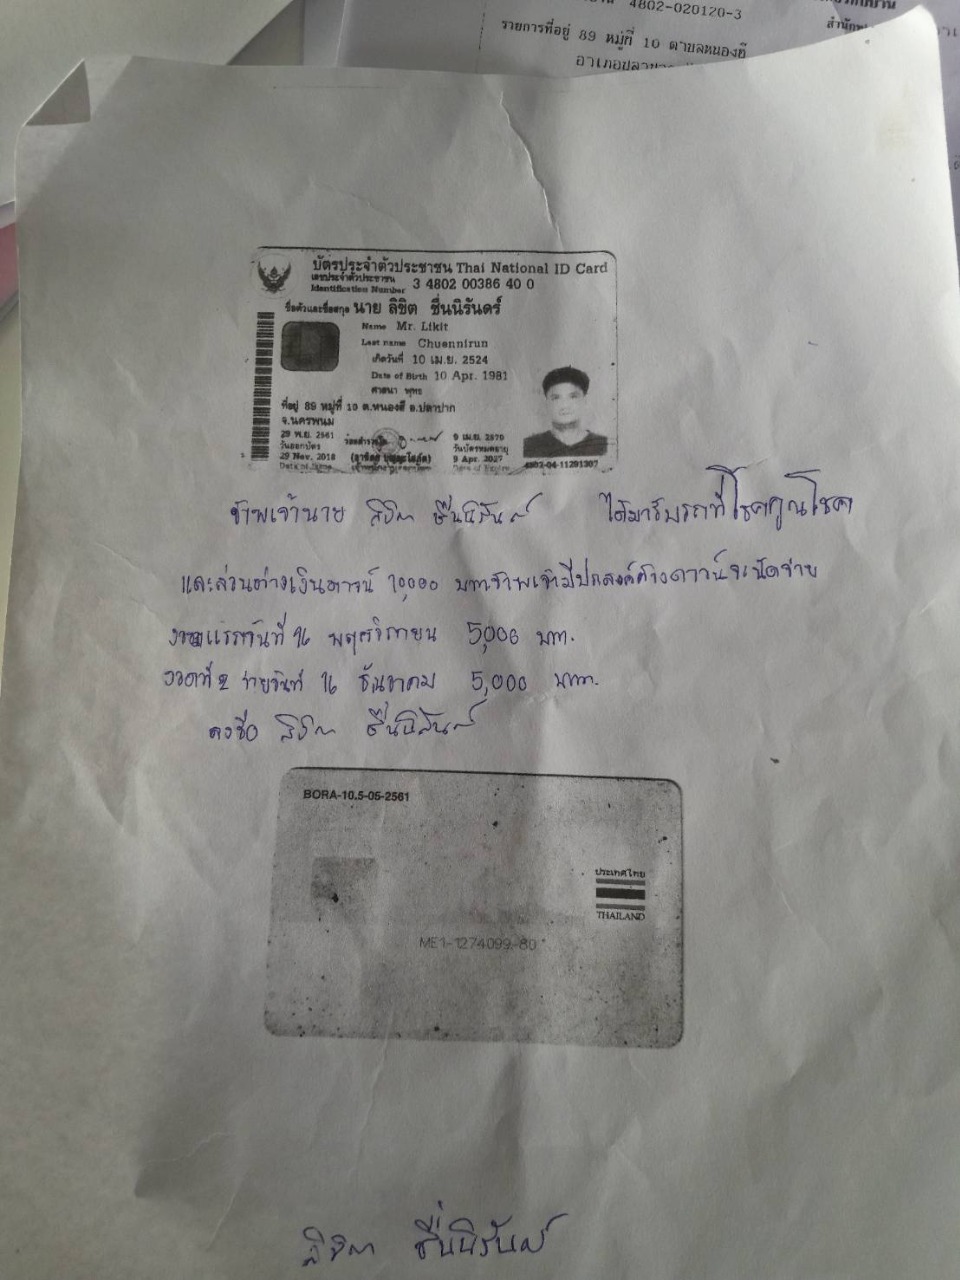 4802-020120-3
รายการที่อยู่ 89 หมู่ที่ 10 ตำบลหนองฮี
บัตรประจำตัวประชาชน Thai National ID Card
เลขประจำตัวประชาชน
Identification Number 3 4802 00386 40 0
ชื่อตัวและชื่อสกุล นาย ลิขิต ชื่นนิรันดร์
Name Mr. Likit
Last name Chuennirun
เกิดวันที่ 10 เม.ย. 2524
Date of Birth 10 Apr. 1981
ศาสนา พุทธ
ที่อยู่ 89 หมู่ที่ 10 ต.หนองฮี อ.ปลาปาก
จ.นครพนม
29 พ.ย. 2561
วันออกบัตร
29 Nov. 2018
Date of Issue
9 เม.ย. 2570
วันบัตรหมดอายุ
9 Apr. 2027
Date of Expiry
4802-04-11291307
ข้าพเจ้านาย ลิขิต ชื่นนิรันดร์ ได้มารับรถที่โชคคูณโชค
และส่วนต่างเงินดาวน์ 10,000 บาทข้าพเจ้ามีประสงค์ค้างดาวน์จะนัดจ่าย
งวดแรกวันที่ 16 พฤศจิกายน 5,000 บาท.
งวดที่ 2 จ่ายวันที่ 16 ธันวาคม 5,000 บาท.
ลงชื่อ ลิขิต ชื่นนิรันดร์
BORA-10.5-05-2561
ประเทศไทย
THAILAND
ME1-1274099-80
ลิขิต ชื่นนิรันดร์